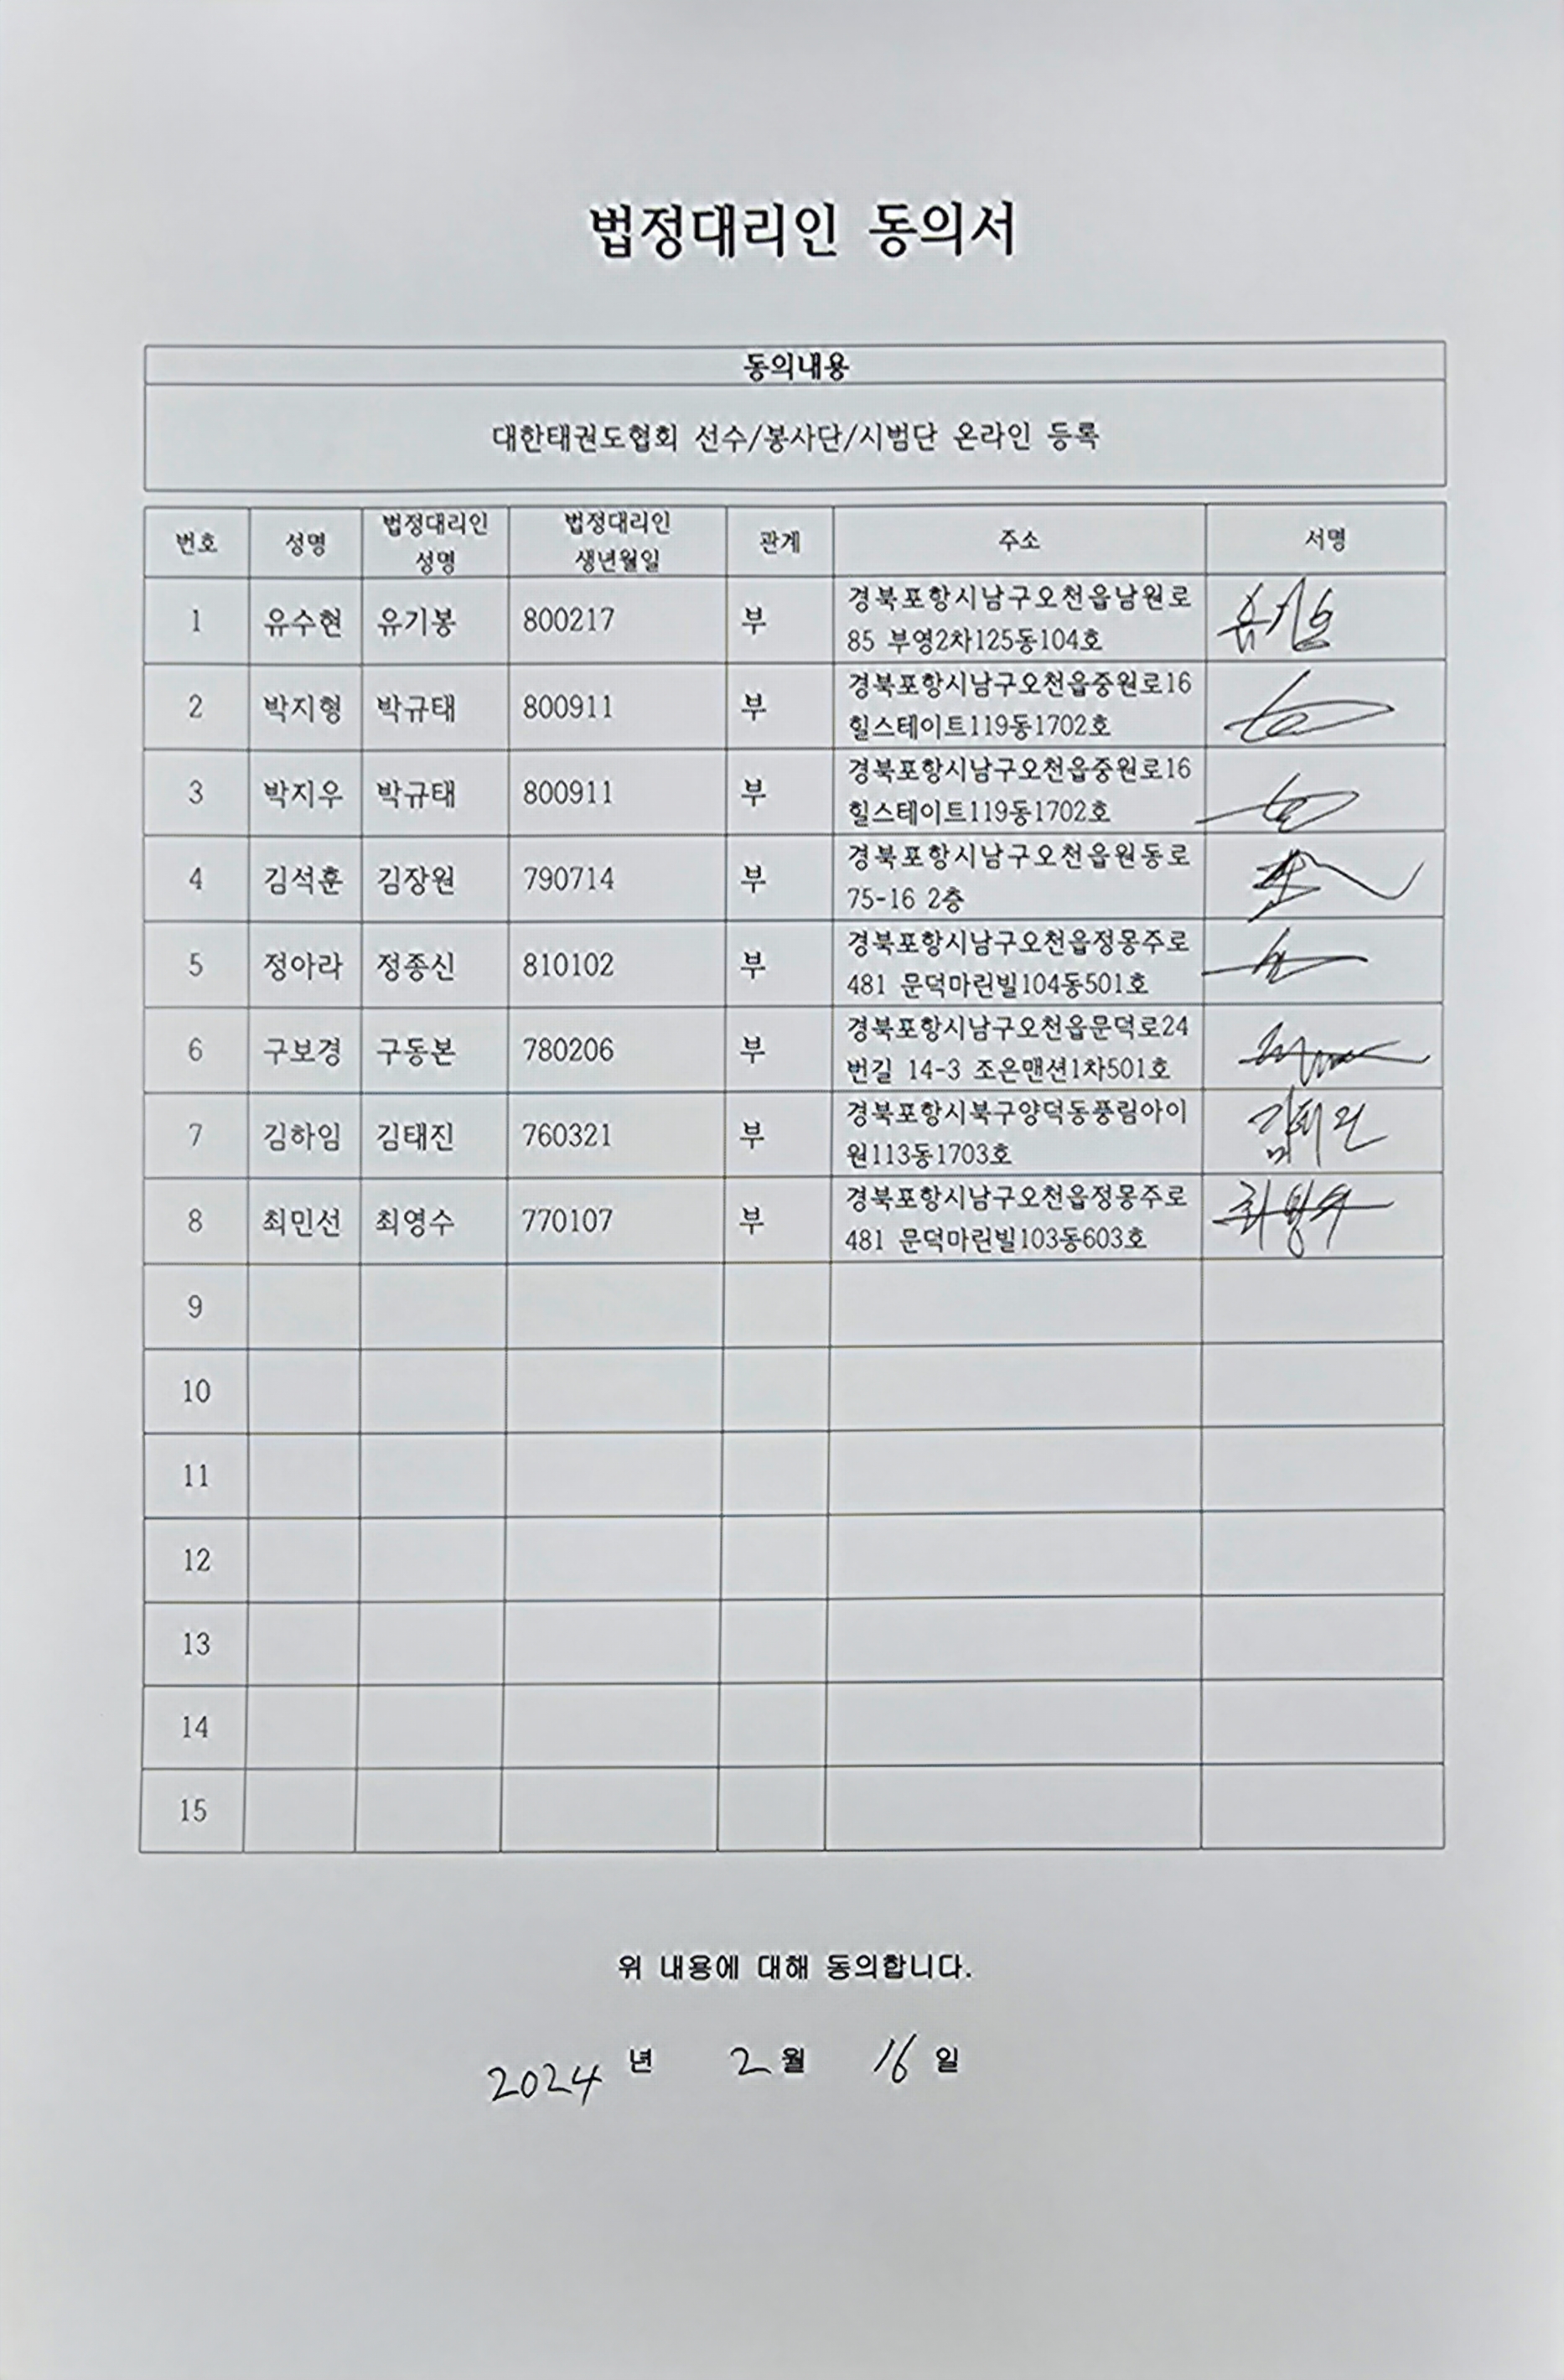 법정대리인 동의서
동의내용
대한태권도협회 선수/봉사단/시범단 온라인 등록
번호 성명 법정대리인 성명 법정대리인 생년월일 관계 주소 서명
1 유수현 유기봉 800217 부 경북포항시남구오천읍남원로
85 부영2차125동104호
2 박지형 박규태 800911 부 경북포항시남구오천읍중원로16
힐스테이트119동1702호
3 박지우 박규태 800911 부 경북포항시남구오천읍중원로16
힐스테이트119동1702호
4 김석훈 김장원 790714 부 경북포항시남구오천읍원동로
75-16 2층
5 정아라 정종신 810102 부 경북포항시남구오천읍정몽주로
481 문덕마린빌104동501호
6 구보경 구동본 780206 부 경북포항시남구오천읍문덕로24
번길 14-3 조은맨션1차501호
7 김하임 김태진 760321 부 경북포항시북구양덕동풍림아이
원113동1703호
8 최민선 최영수 770107 부 경북포항시남구오천읍정몽주로
481 문덕마린빌103동603호
최영수
9
10
11
12
13
14
15
위 내용에 대해 동의합니다.
2024 년 2 월 16 일